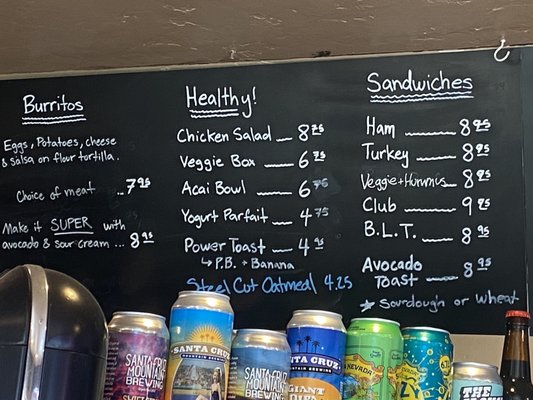 Burritos
Eggs, Potatoes, cheese
& salsa on flour tortilla.
Choice of meat ..7 95
Make it SUPER with
avocado & sour cream ... 8 95
Healthy!
Chicken Salad 8 25
Veggie Box 6 75
Acai Bowl 6 75
Yogurt Parfait 4 75
Power Toast 4 95
↳ P.B. + Banana
Steel Cut Oatmeal 4.25
Sandwiches
Ham 8 95
Turkey 8 95
Veggie + Hummus 8 95
Club 9 25
B.L.T. 8 95
Avocado
Toast 8 95
★ Sourdough or Wheat
SANTA CRUZ
MOUNTAIN
BREWING
SANTA CRUZ
SANTA CRUZ
MOUNTAIN
BREWING
SANTA CRUZ
GIANT
NEVADA
THE